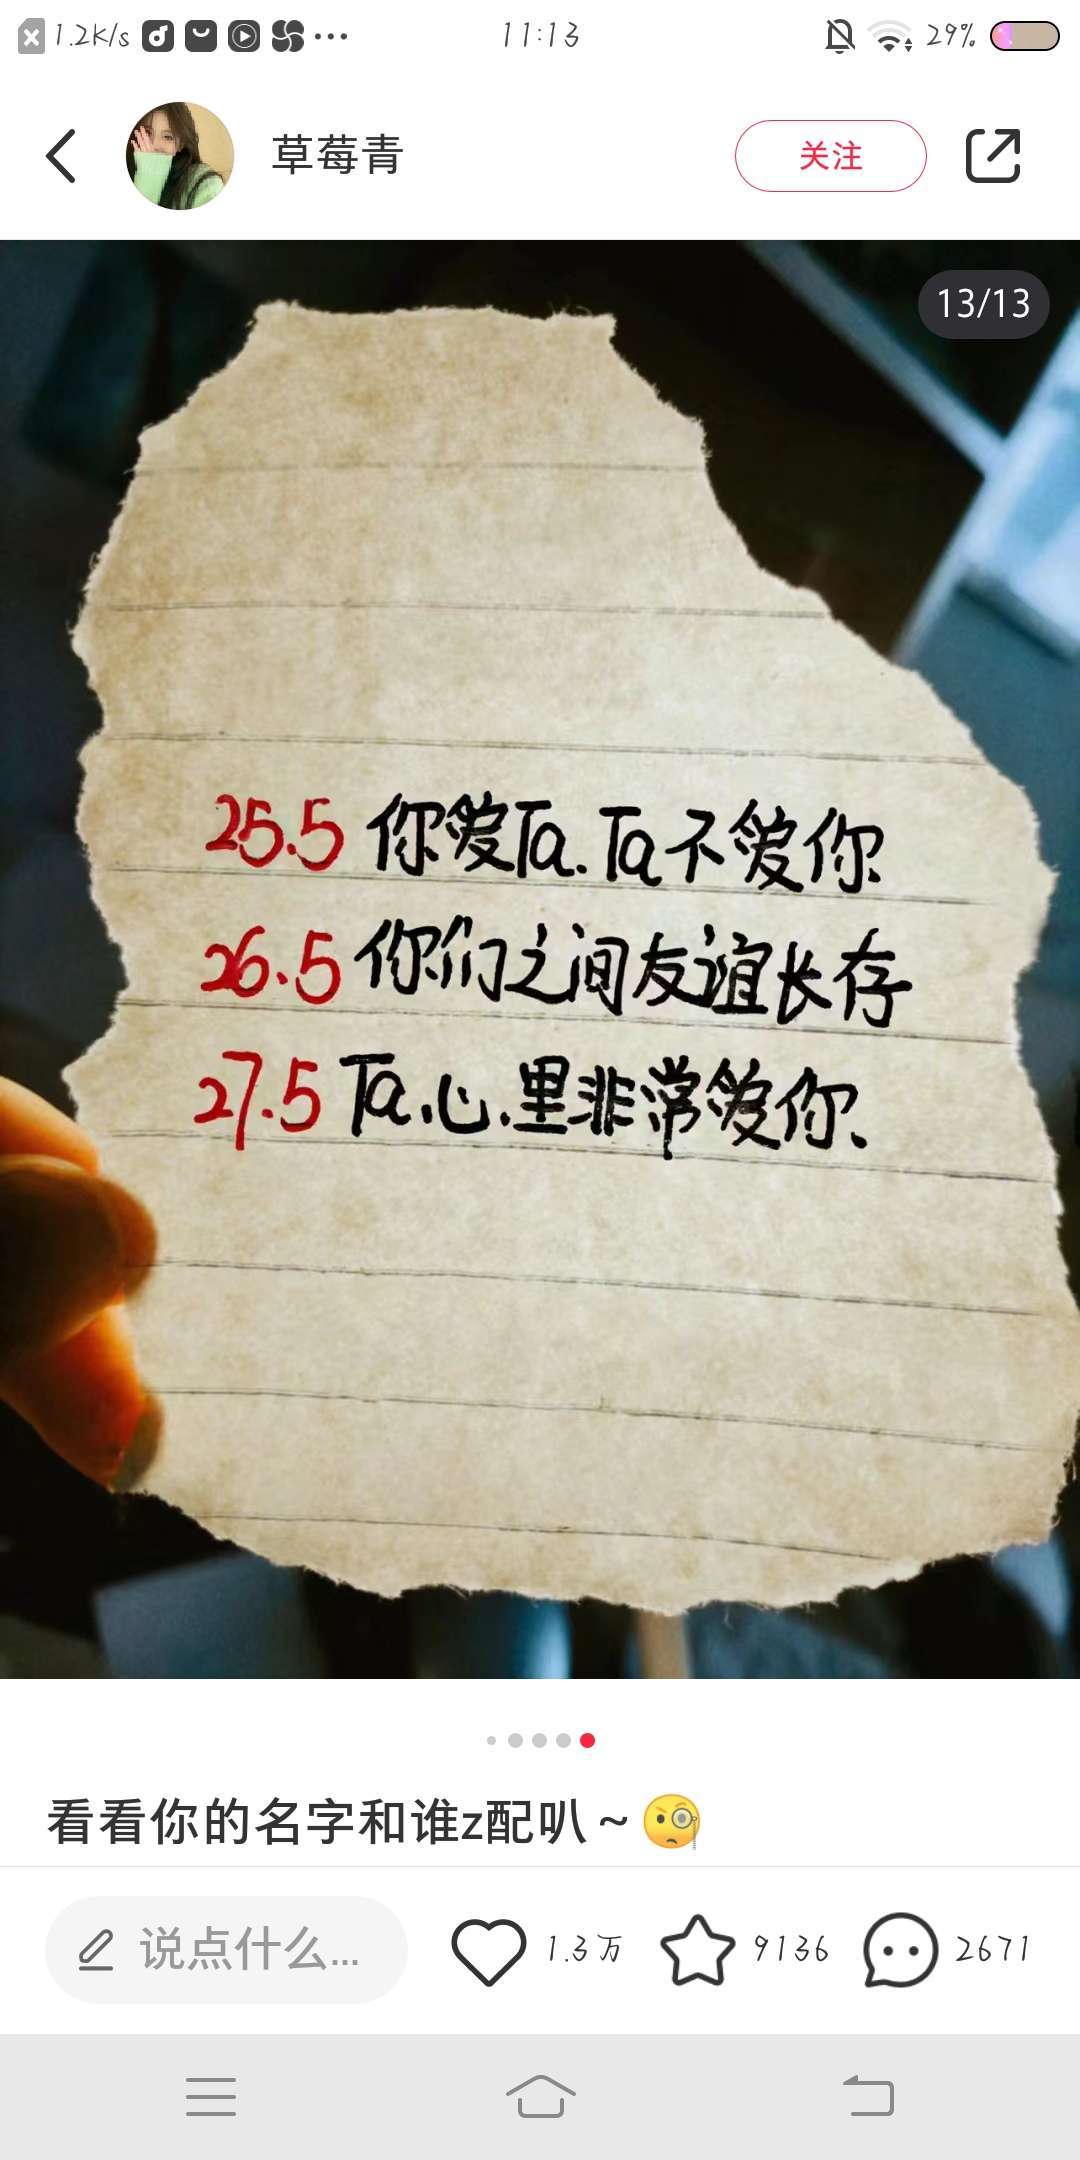 1.2K/s
11:13
29%
草莓青
关注
13/13
25.5 你爱Ta.Ta不爱你
26.5 你们之间友谊长存
27.5 Ta心里非常爱你
看看你的名字和谁z配叭～
说点什么...
1.3万
9136
2671